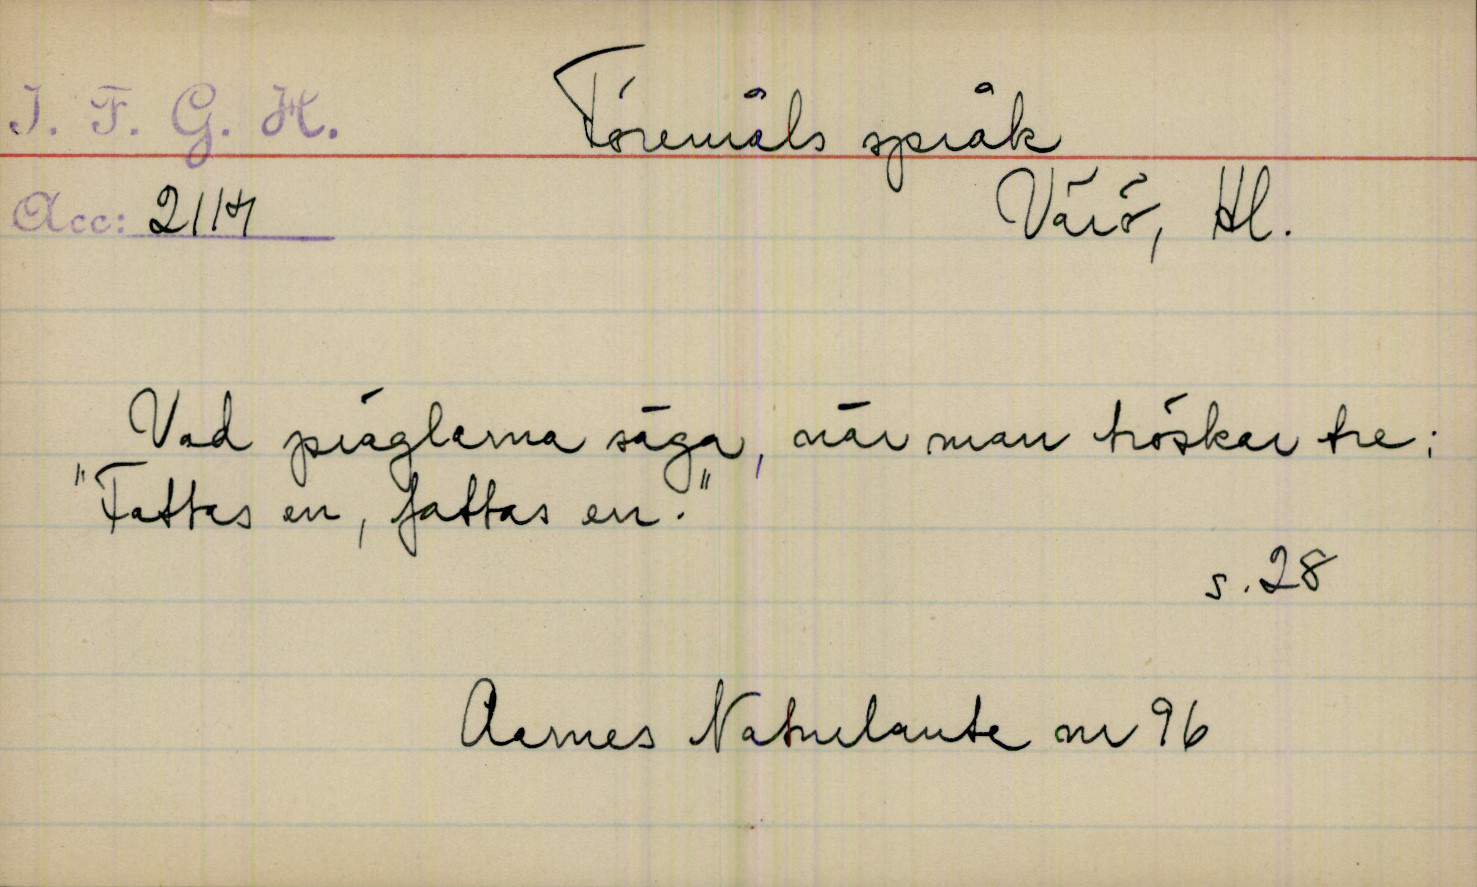 I. F. G. H.
Föremåls språk
Acc: 2114
Värö, Hl.
Vad präglarna säga, när man tröskar tre:
"Fattas en, fattas en."
s. 28
Aarnes Naturlaute nr 96